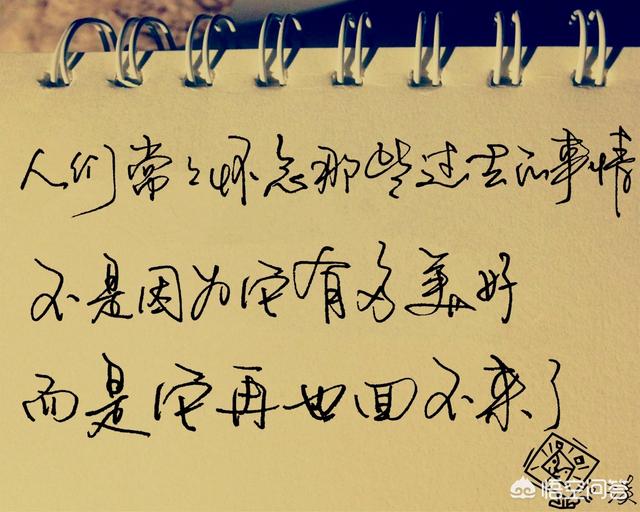 人们常々怀念那些过去的事情
不是因为它有多美好
而是它再也回不来了
悟空问答